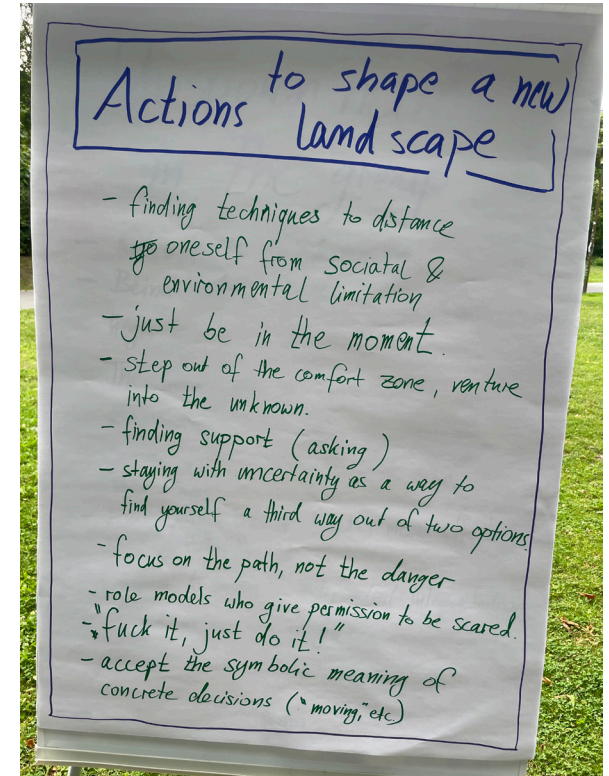 Actions to shape a new
landscape
- finding techniques to distance
oneself from sociatal &
environmental limitation
- just be in the moment.
- step out of the comfort zone, venture
into the unknown.
- finding support (asking)
- staying with uncertainty as a way to
find yourself a third way out of two options.
- focus on the path, not the danger
- role models who give permission to be scared.
- "fuck it, just do it!"
- accept the symbolic meaning of
concrete decisions ("moving," etc.)